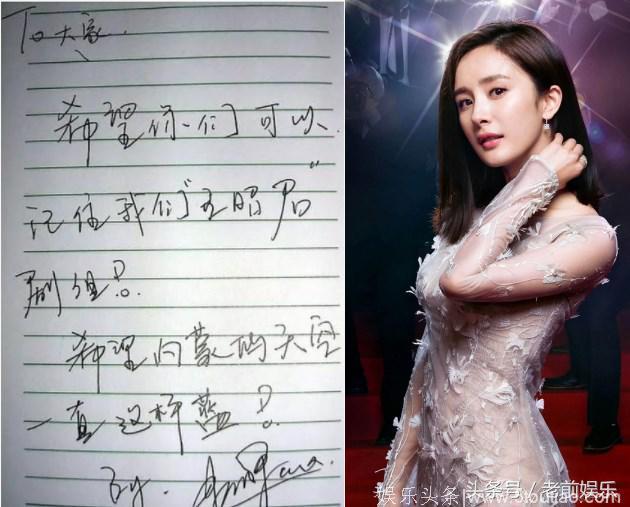 To 大家
希望你们可以
记住我们"王昭君"
剧组!
希望内蒙的天空
一直这样蓝!
By.
头条号 / 老前娱乐
娱乐头条 www.5toutiao.com